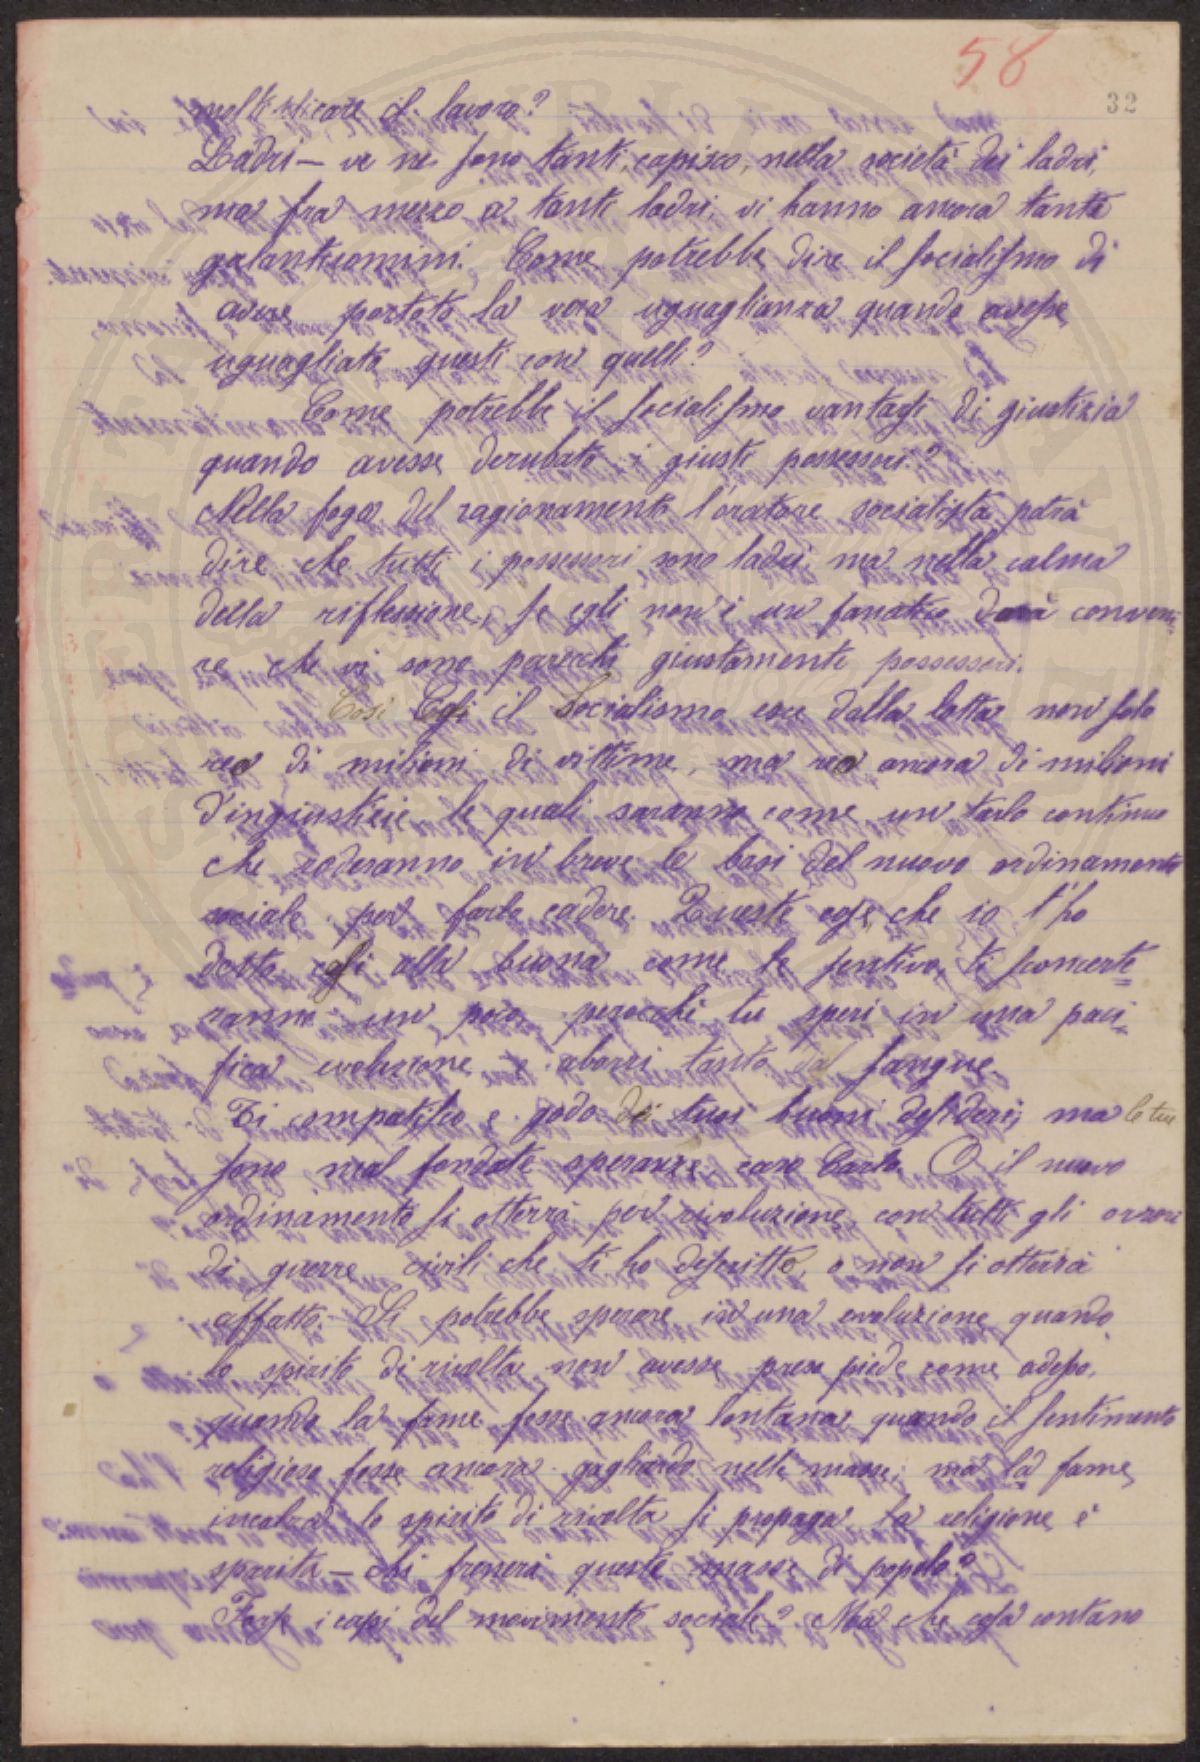 58
32
moltiplicare il lavoro?
Ladri — ve ne sono tanti, capisco, nella società dei ladri,
ma fra mezzo a tanti ladri, vi hanno ancora tanti
galantuomini. Come potrebbe dire il socialismo di
avere portato la vera uguaglianza quando avesse
uguagliato questi con quelli?
Come potrebbe il socialismo vantarsi di giustizia
quando avesse derubato i giusti possessori?
Nella foga del ragionamento l'oratore socialista potrà
dire che tutti i possessori sono ladri, ma nella calma
della riflessione, se egli non è un fanatico dovrà conveni-
re che vi sono parecchi giustamente possessori.
Così il Socialismo esce dalla lotta non solo
reo di milioni di vittime, ma reo ancora di milioni
d'ingiustizie le quali saranno come un tarlo continuo
che roderanno in breve le basi del nuovo ordinamento
sociale per farlo cadere. Queste cose che io t'ho
detto così alla buona come le sentivo, ti sconcerte=
ranno un poco, perocchè tu speri in una paci=
fica evoluzione e aborri tanto dal sangue.
Ti compatisco e godo dei tuoi buoni desideri; ma le tue
sono mal fondate speranze caro Carlo. O il nuovo
ordinamento si otterrà per rivoluzione con tutti gli orrori
di guerre civili che ti ho descritto, o non si otterrà
affatto. Si potrebbe sperare in una evoluzione quando
lo spirito di rivolta non avesse preso piede come adesso,
quando la fame fosse ancora lontana, quando il sentimento
religioso fosse ancora gagliardo nelle masse; ma la fame
incalza lo spirito di rivolta si propaga la religione è
sparita — chi frenerà queste masse di popolo?
Forse i capi del movimento sociale? Ma che cosa contano